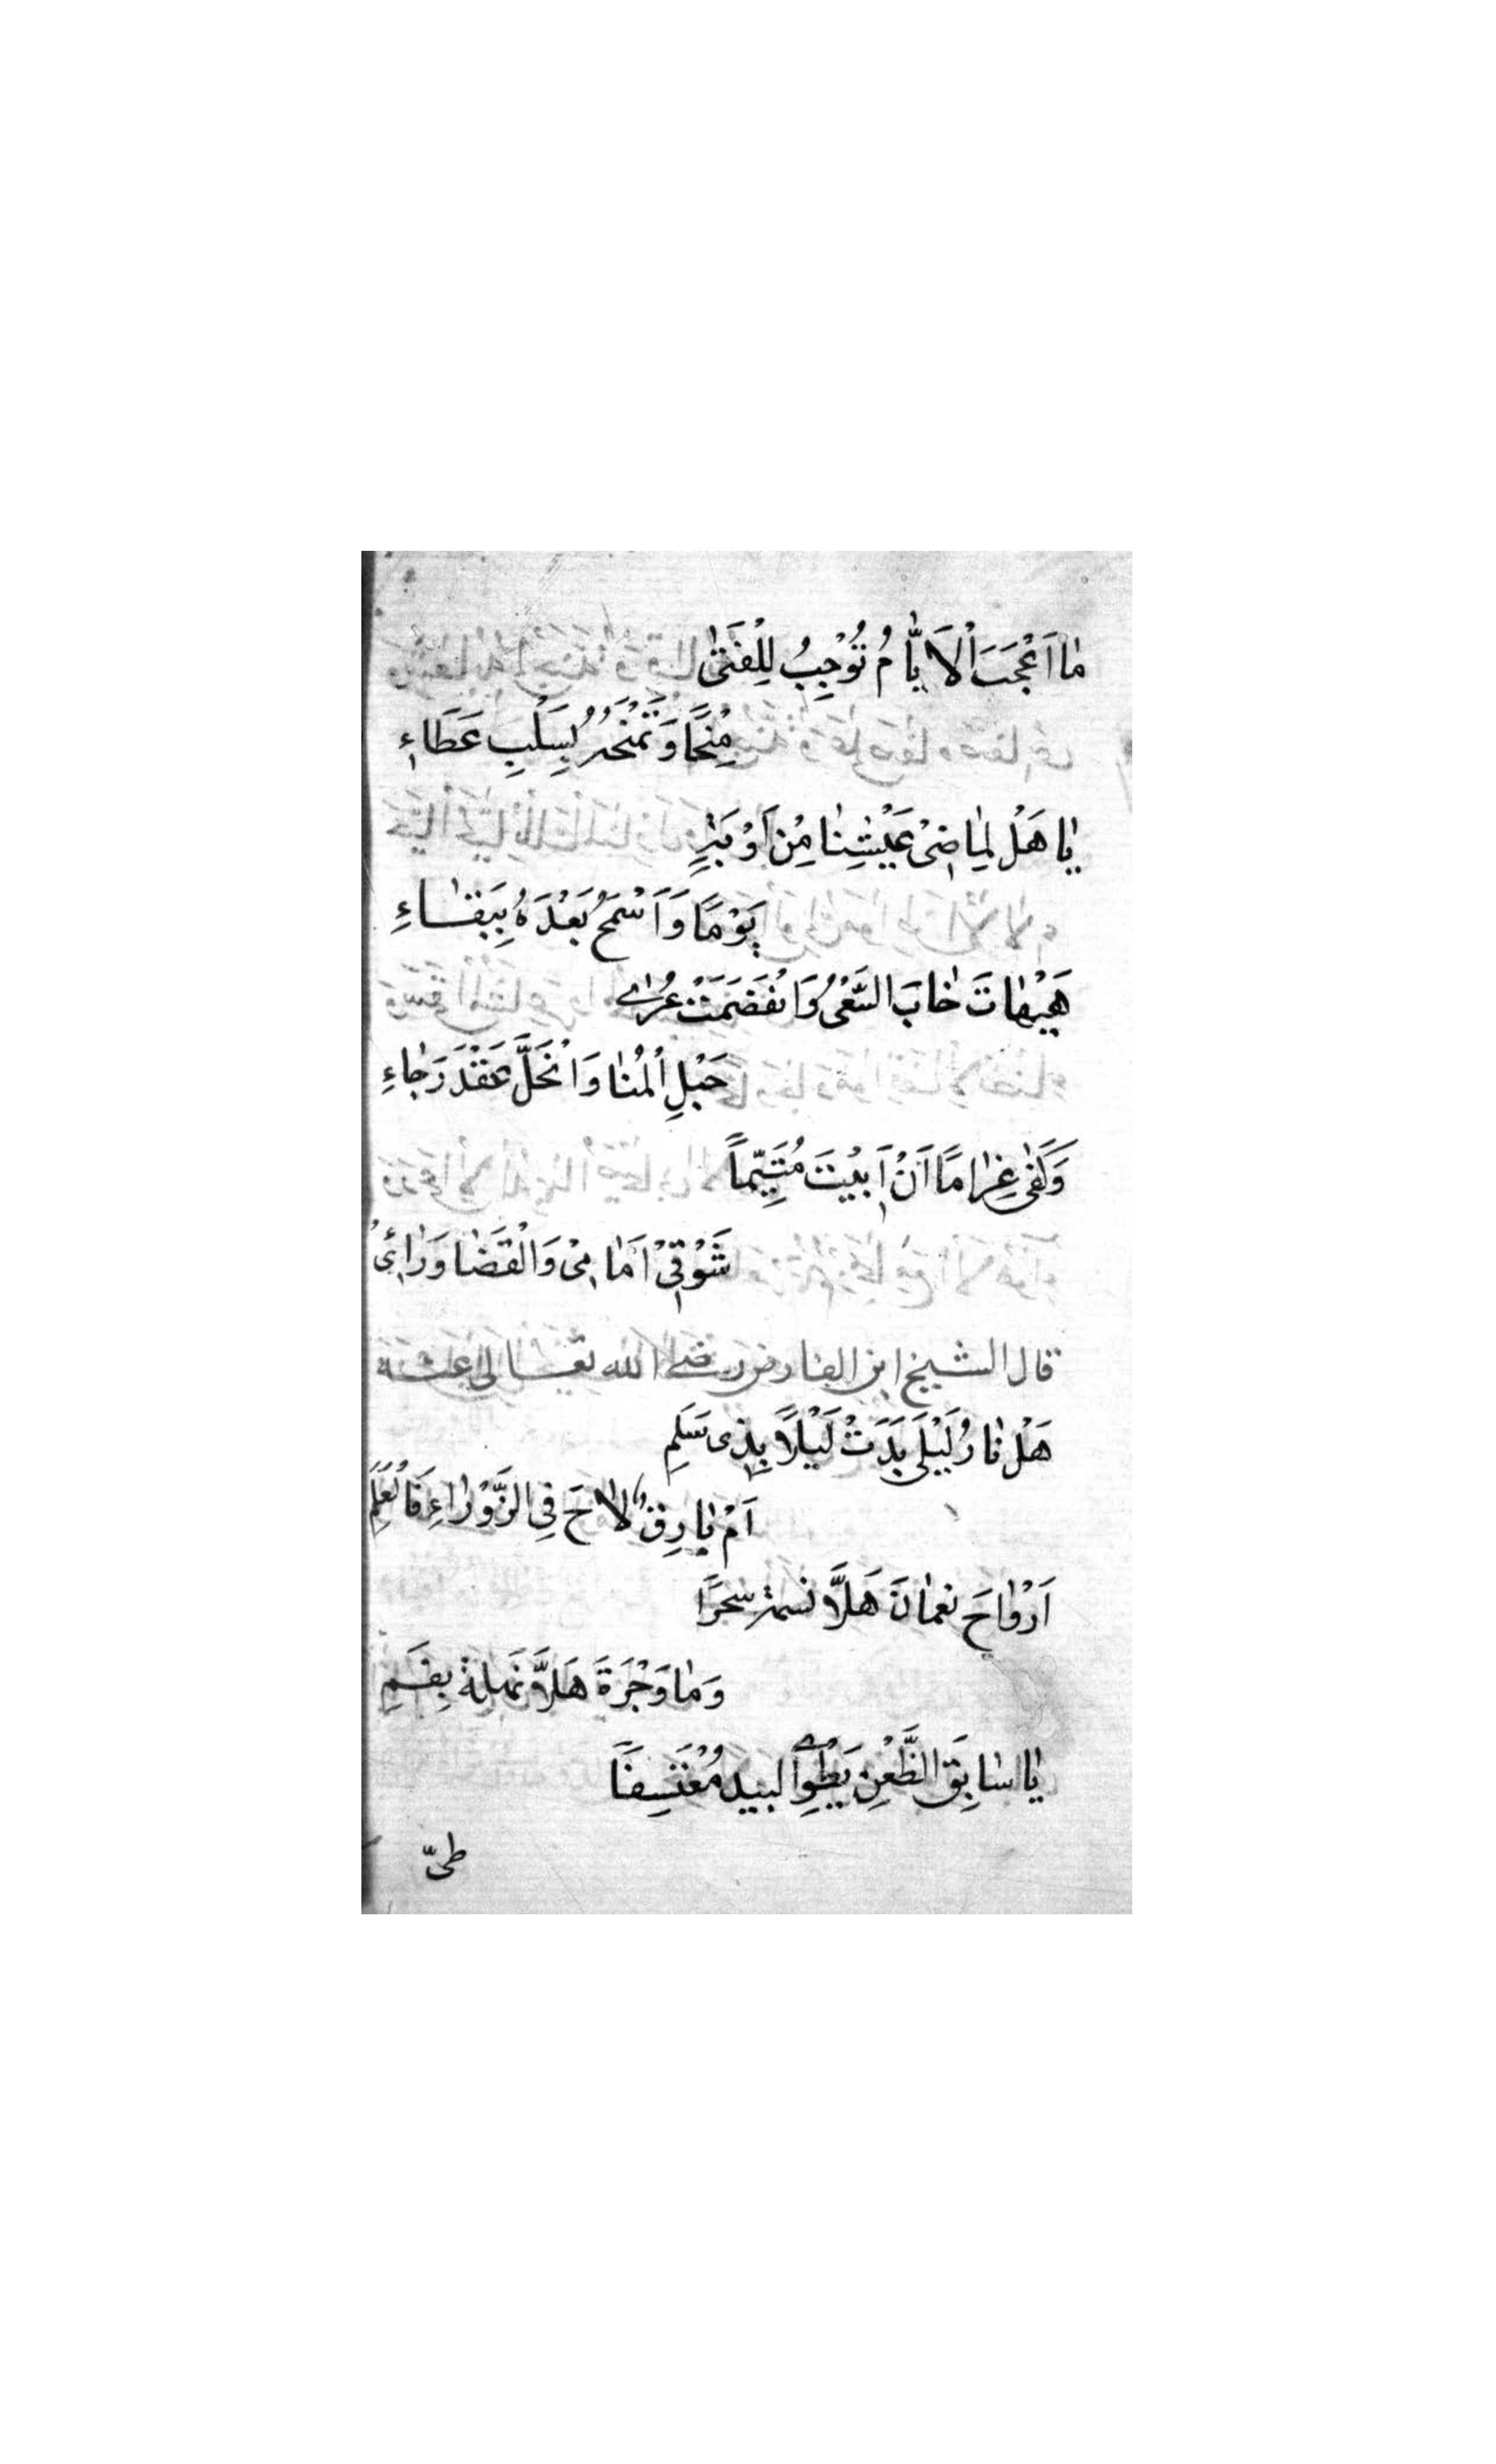 مٰا اَعْجَبَ اْلاَيّٰامُ تُوْجِبُ لِلْفَتٰى
مِنْحًا وَتَمْنَحُهُ بِسَلْبِ عَطَاءِ
يٰا هَلْ لِمٰاضِىْ عَيْشِنٰا مِنْ اَوْبَةٍ
يَوْمًا وَاَسْمَحُ بَعْدَهُ بِبَقٰاءِ
هَيْهٰاتَ خٰابَ السَّعْىُ وَانْفَصَمَتْ عُرٰى
حَبْلِ اْلمُنٰا وَانْحَلَّ عَقْدُ رَجٰاءِ
وَكَفٰى غِرٰامًا اَنْ اَبِيْتَ مُتَيِّماً
شَوْقِىْ اَمٰامِىْ وَالْقَضٰا وَرٰائِىْ
قال الشيخ ابن الفارض رضى الله تعالى عنه
هَلْ نٰارُ لَيْلَى بَدَتْ لَيْلاً بِذِى سَلَمِ
اَمْ بٰارِقٌ لاٰحَ فِى الزَّوْرٰاءِ فَالْعَلَمِ
اَرْوٰاحَ نعمٰانَ هَلاَّ نسمة سحَرًا
وَمٰا وَجْرَةَ هَلاَّ نَهلة بِفَمِ
يٰا سٰابِقَ الظَّعْنِ يَطْوِى البيد مُعْتَسِفًا
طىّ